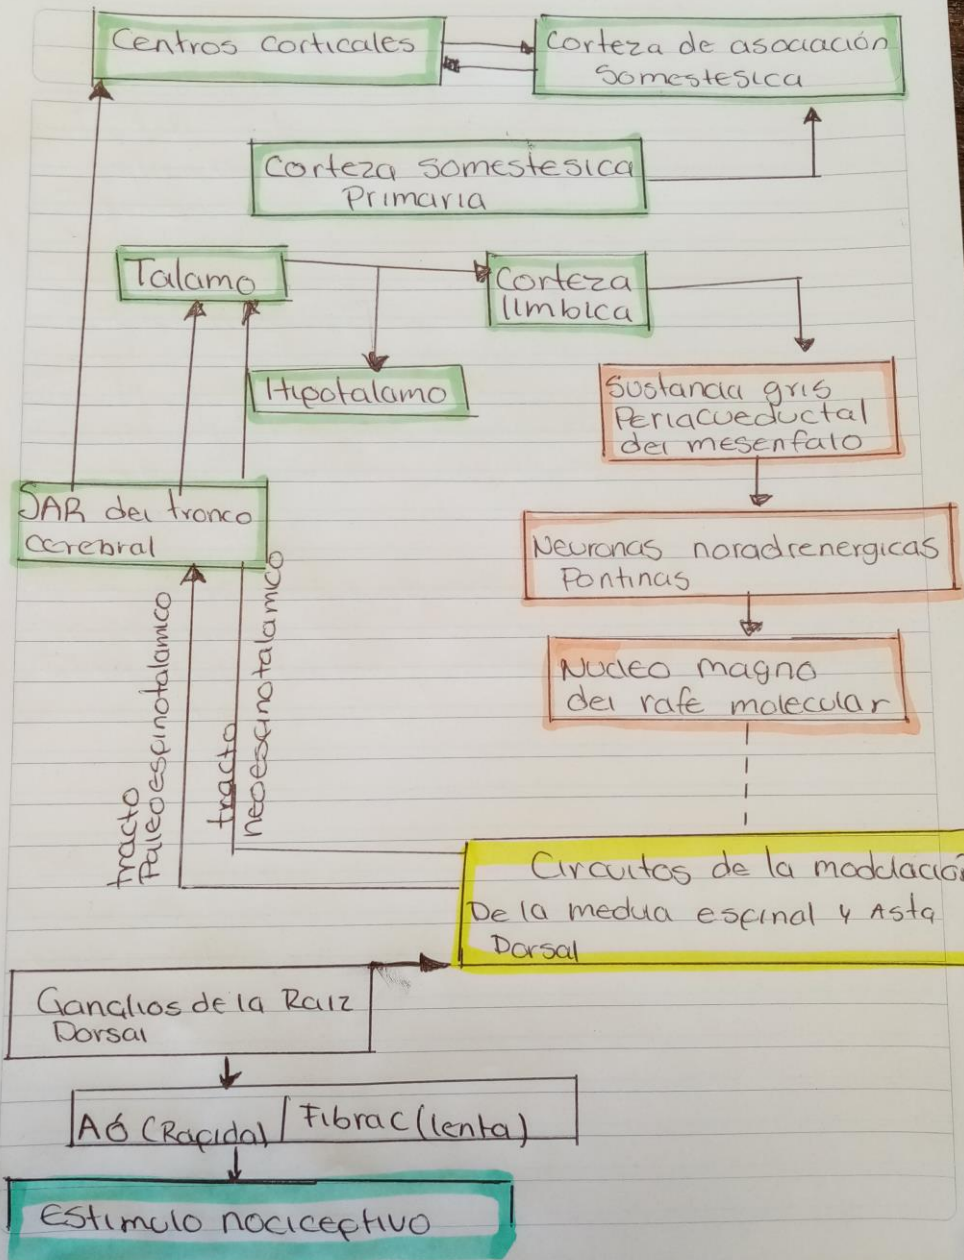 Centros corticales
Corteza de asociación
Somestesica
Corteza somestesica
Primaria
Talamo
Corteza
límbica
Hipotalamo
Sustancia gris
Periacueductal
del mesenfalo
SAR del tronco
cerebral
Neuronas noradrenergicas
Pontinas
tracto
Paleoespinotalamico
tracto
neoespinotalamico
Nucleo magno
del rafe molecular
Circuitos de la modulació
De la medula espinal y Asta
Dorsal
Ganglios de la Raiz
Dorsal
Aó (Rapida) / Fibrac (lenta)
Estimulo nociceptivo